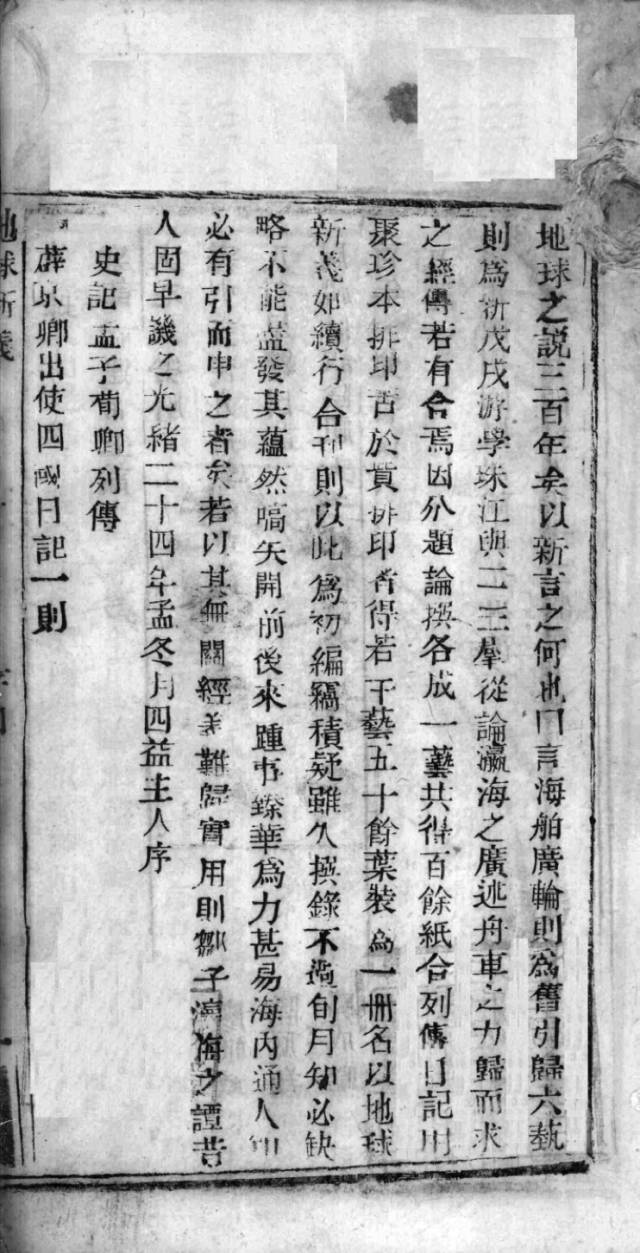 地球之說三百年矣以新言之何也曰言海舶廣輪則為舊引歸六藝
則為新戊戌游學珠江與二三羣從論瀛海之廣述舟車之力歸而求
之經傳若有合焉因分題論撰各成一藝共得百餘紙合列傳日記用
聚珍本排印苦於貲排印者得若干藝五十餘葉裝為一冊名以地球
新義如續行合刊則以此為初編竊積疑雖久撰錄不過旬月知必缺
略不能盡發其蘊然嚆矢開前後來踵事臻華為力甚易海內通人知
必有引而申之者矣若以其無關經義難歸實用則鄒子瀛海之譚昔
人固早譏之光緒二十四年孟冬月四益主人序
史記孟子荀卿列傳
薛京卿出使四國日記一則
地球新義